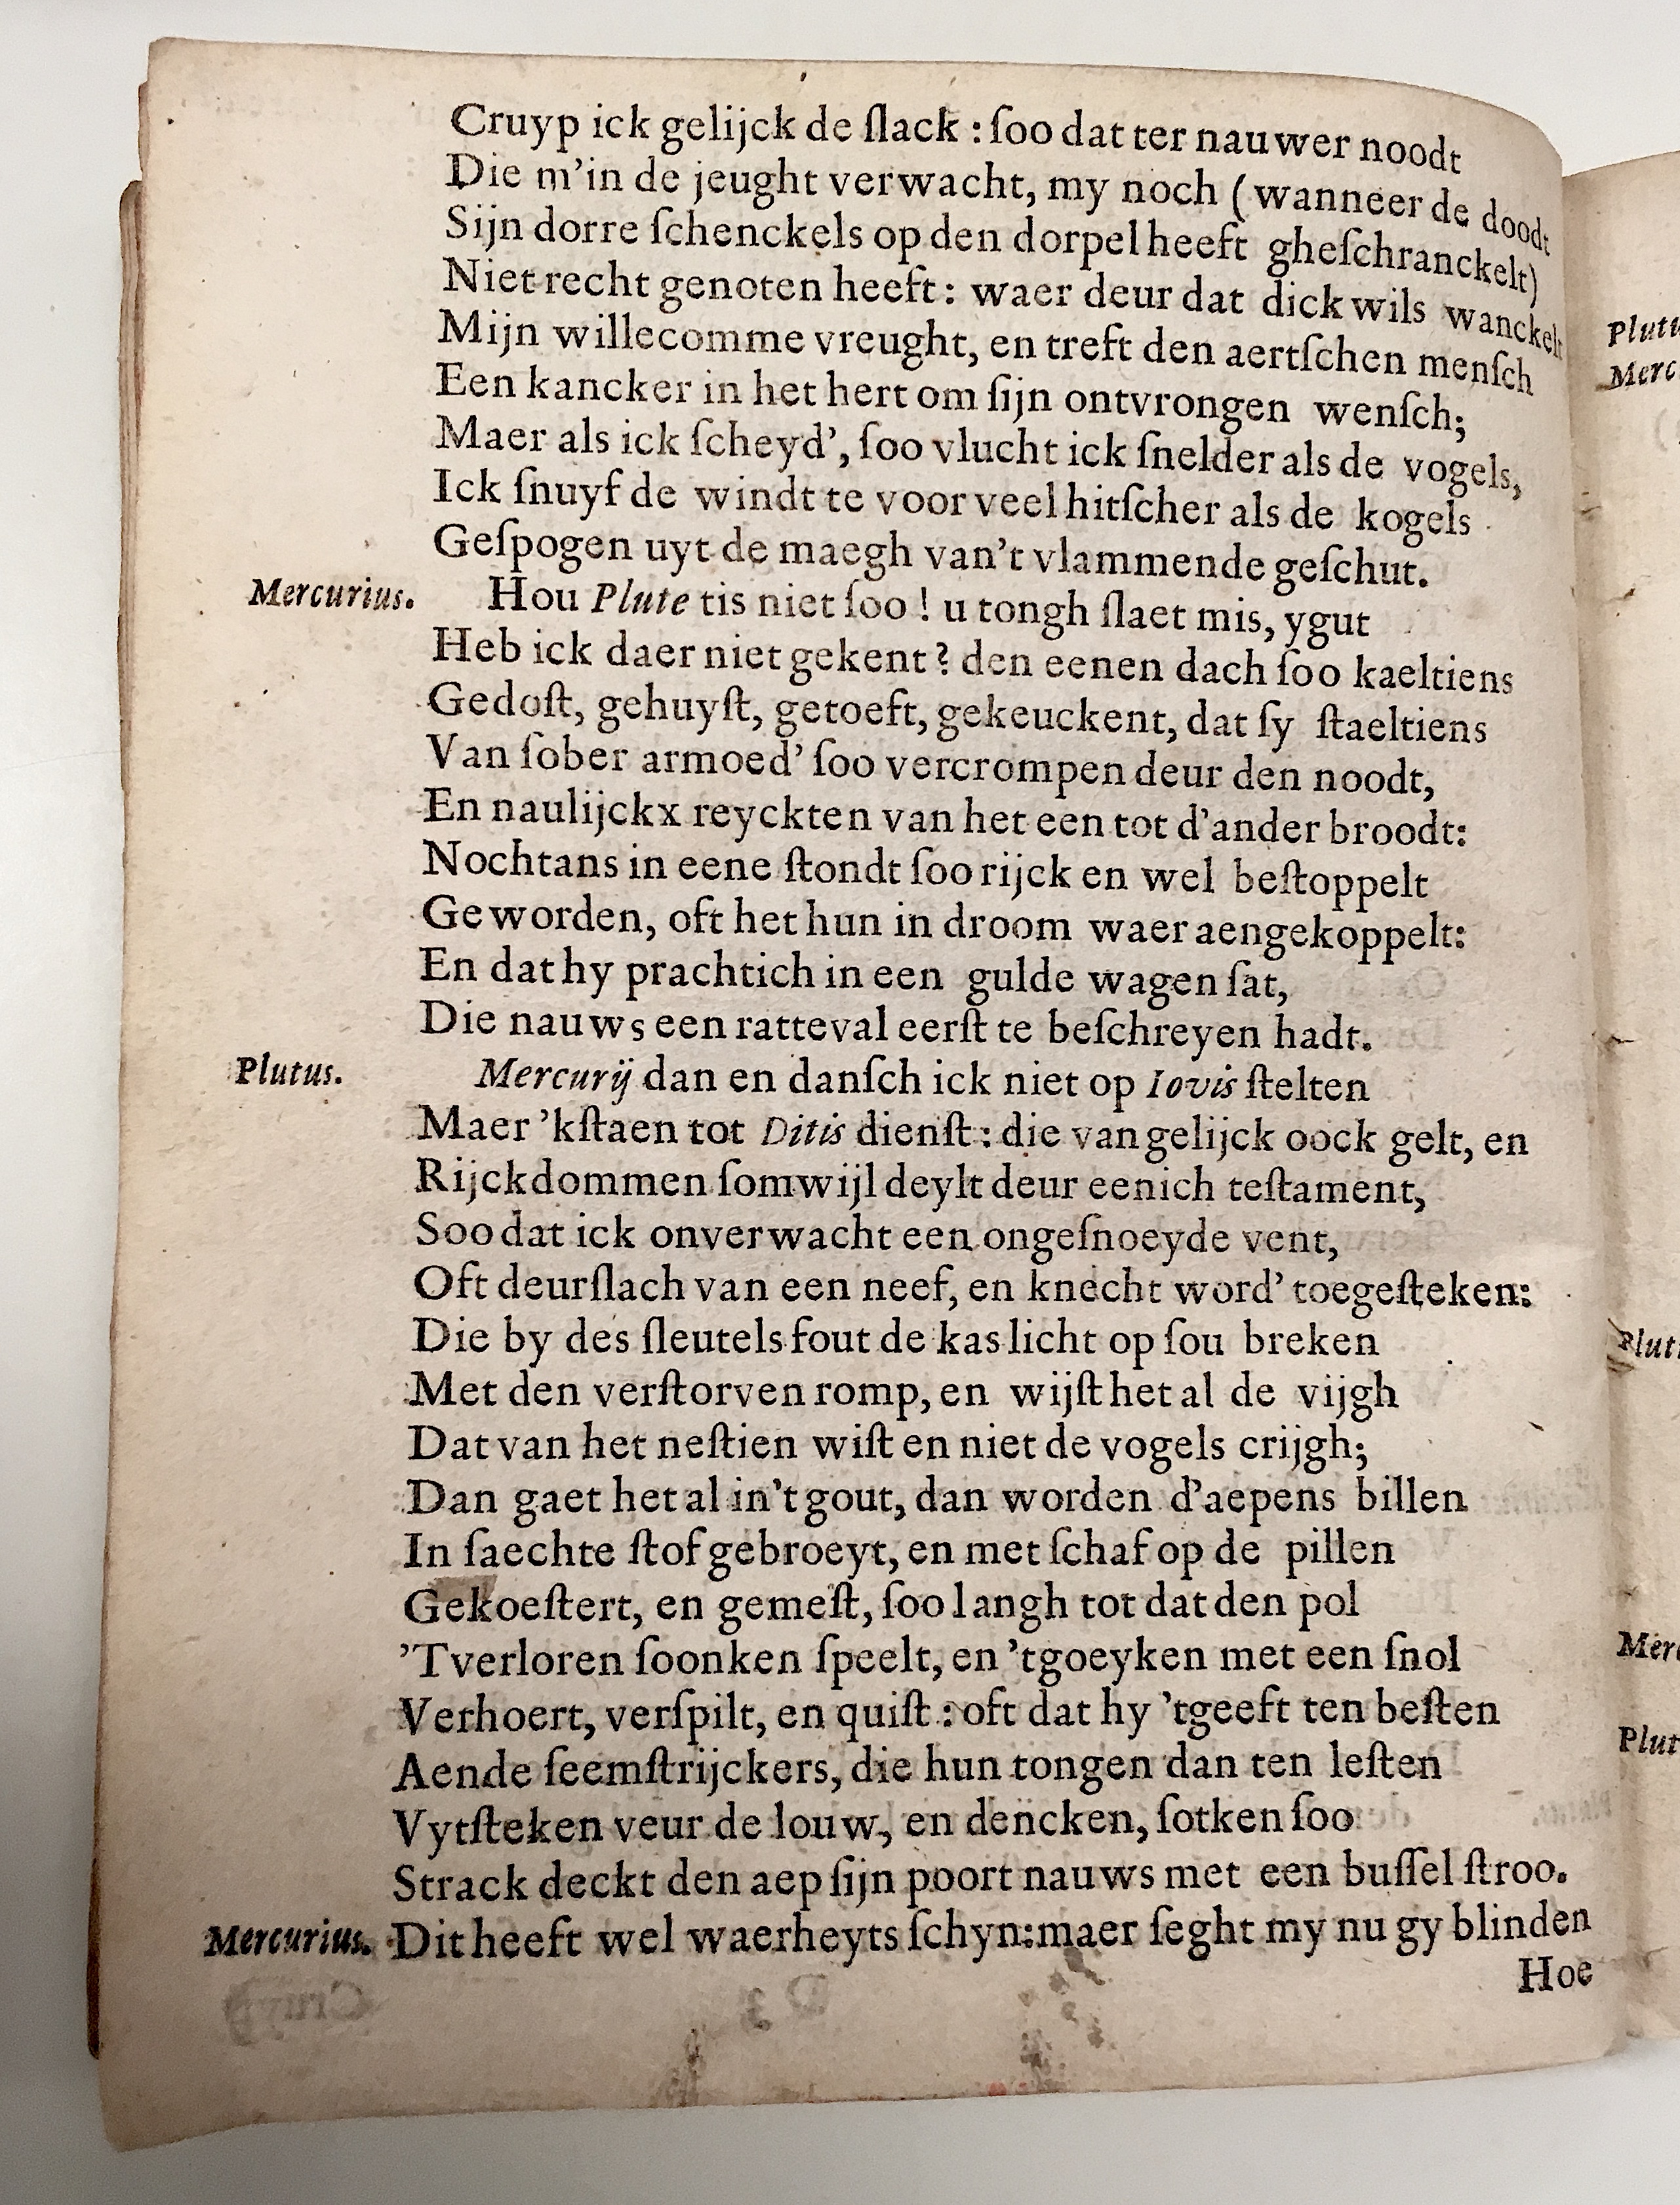 Cruyp ick gelijck de ſlack : ſoo dat ter nauwer noodt
Die m'in de jeught verwacht, my noch (wanneer de doodt
Sijn dorre ſchenckels op den dorpel heeft gheſchranckelt)
Niet recht genoten heeft : waer deur dat dickwils wanckelt
Mijn willecomme vreught, en treft den aertſchen menſch
Een kancker in het hert om ſijn ontvrongen wenſch;
Maer als ick ſcheyd', ſoo vlucht ick ſnelder als de vogels,
Ick ſnuyf de windt te voor veel hitſcher als de kogels
Geſpogen uyt de maegh van't vlammende geſchut.
Mercurius. Hou Plute tis niet ſoo ! u tongh ſlaet mis, ygut
Heb ick daer niet gekent ? den eenen dach ſoo kaeltiens
Gedoſt, gehuyſt, getoeft, gekeuckent, dat ſy ſtaeltiens
Van ſober armoed' ſoo vercrompen deur den noodt,
En naulijckx reyckten van het een tot d'ander broodt:
Nochtans in eene ſtondt ſoo rijck en wel beſtoppelt
Geworden, oft het hun in droom waer aengekoppelt:
En dat hy prachtich in een gulde wagen ſat,
Die nauws een ratteval eerſt te beſchreyen hadt.
Plutus. Mercurij dan en danſch ick niet op Iovis ſtelten
Maer 'kſtaen tot Ditis dienſt : die van gelijck oock gelt, en
Rijckdommen ſomwijl deylt deur eenich teſtament,
Soo dat ick onverwacht een ongeſnoeyde vent,
Oft deurſlach van een neef, en knecht word' toegeſteken:
Die by des ſleutels fout de kas licht op ſou breken
Met den verſtorven romp, en wijſt het al de vijgh
Dat van het neſtien wiſt en niet de vogels crijgh;
Dan gaet het al in't gout, dan worden d'aepens billen
In ſaechte ſtof gebroeyt, en met ſchaf op de pillen
Gekoeſtert, en gemeſt, ſoo langh tot dat den pol
'Tverloren ſoonken ſpeelt, en 'tgoeyken met een ſnol
Verhoert, verſpilt, en quiſt : oft dat hy 'tgeeft ten beſten
Aende ſeemſtrijckers, die hun tongen dan ten leſten
Vytſteken veur de louw, en dencken, ſotken ſoo
Strack deckt den aep ſijn poort nauws met een buſſel ſtroo.
Mercurius. Dit heeft wel waerheyts ſchyn: maer ſeght my nu gy blinden
Hoe